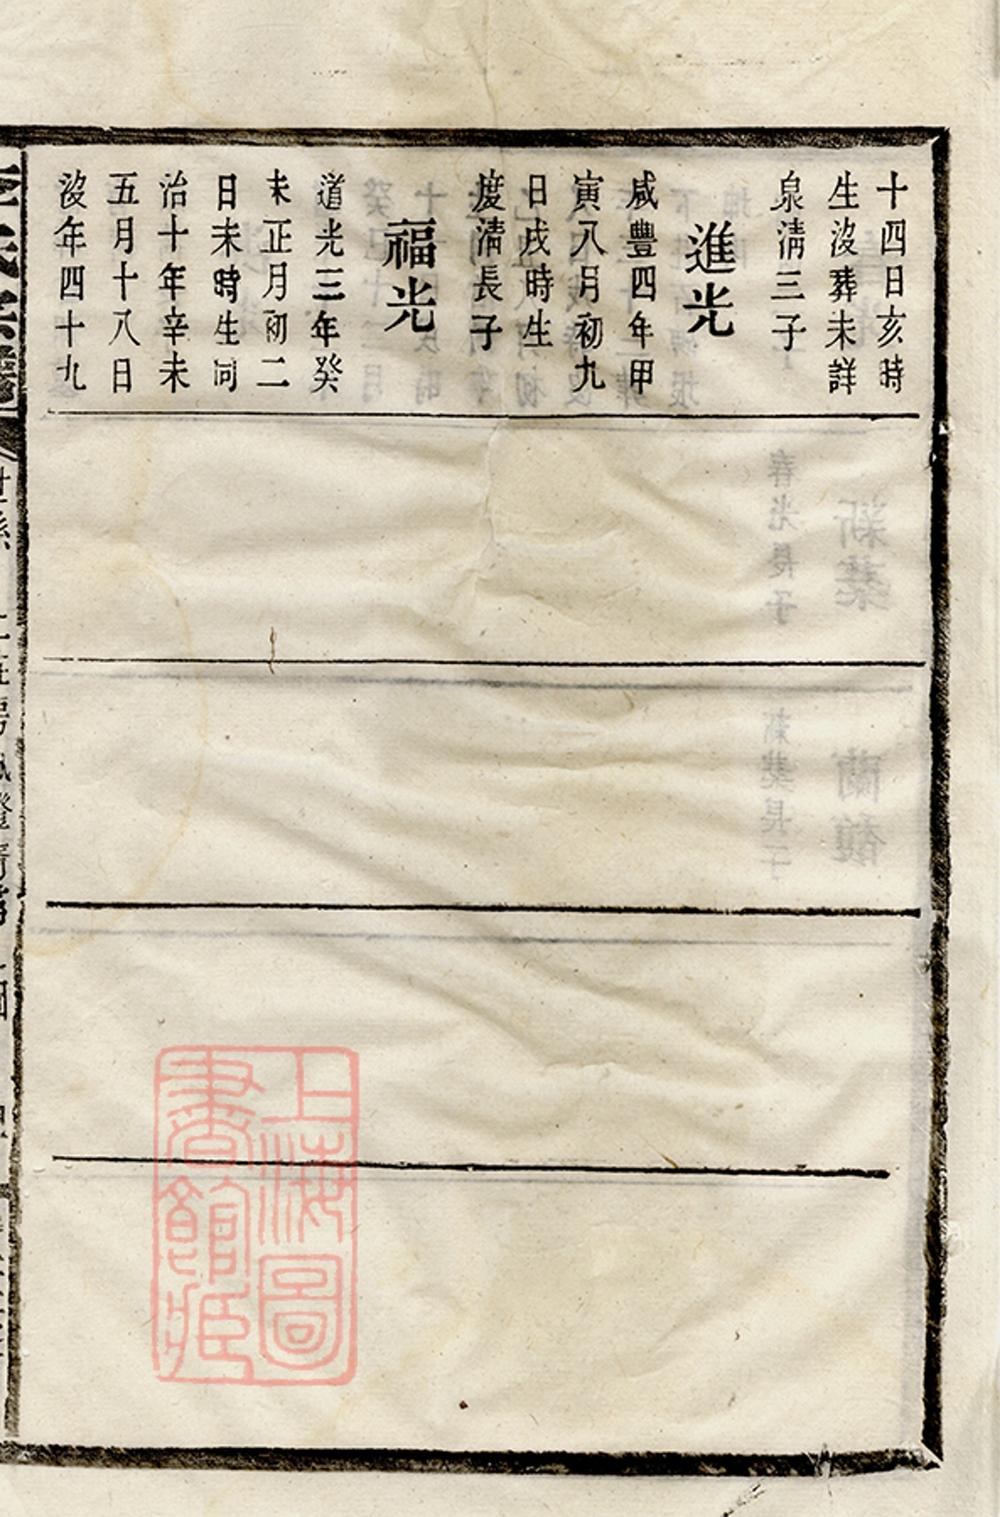 十四日亥時
生沒葬未詳
泉清三子
進光
咸豐四年甲
寅八月初九
日戌時生
度清長子
福光
道光三年癸
未正月初二
日未時生同
治十年辛未
五月十八日
沒年四十九
上海圖
書館藏